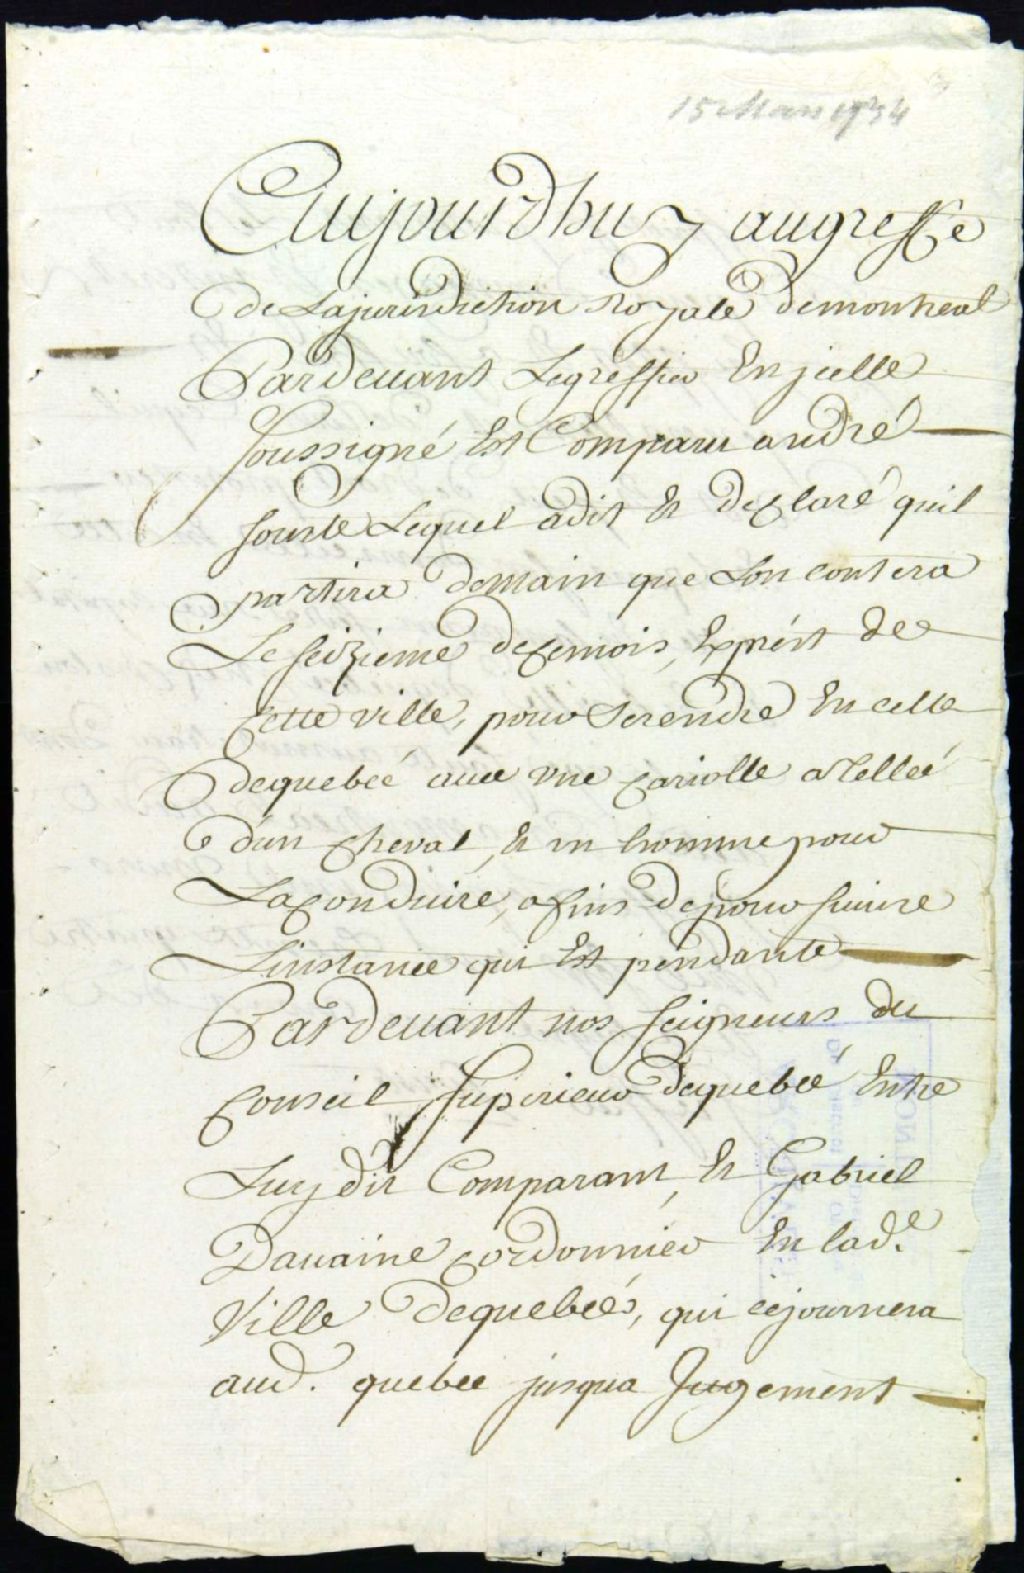 15 Mars 1734
Aujourdhuy augreffe
de Lajurisdiction Royale demontreal
Pardevant Legreffier En jcelle
soussigné Est Comparu andré
sourte Lequel adit Et declaré quil
partira demain que Lon contera
Le seizieme decemois, Exprést de
cette ville, pour Serendre En celle
dequebéc avec vne cariolle attellée
d'un cheval, Et un homme pour
Laconduire, afins depoursuivre
Linstance qui Est pendante
Pardevant nos seigneurs du
conseil superieur dequebéc Entre
Luy dit Comparant, Et Gabriel
Davaine cordonnier En lad.e
Ville dequebéc, qui sejournera
aud. quebec jusqua Jugement